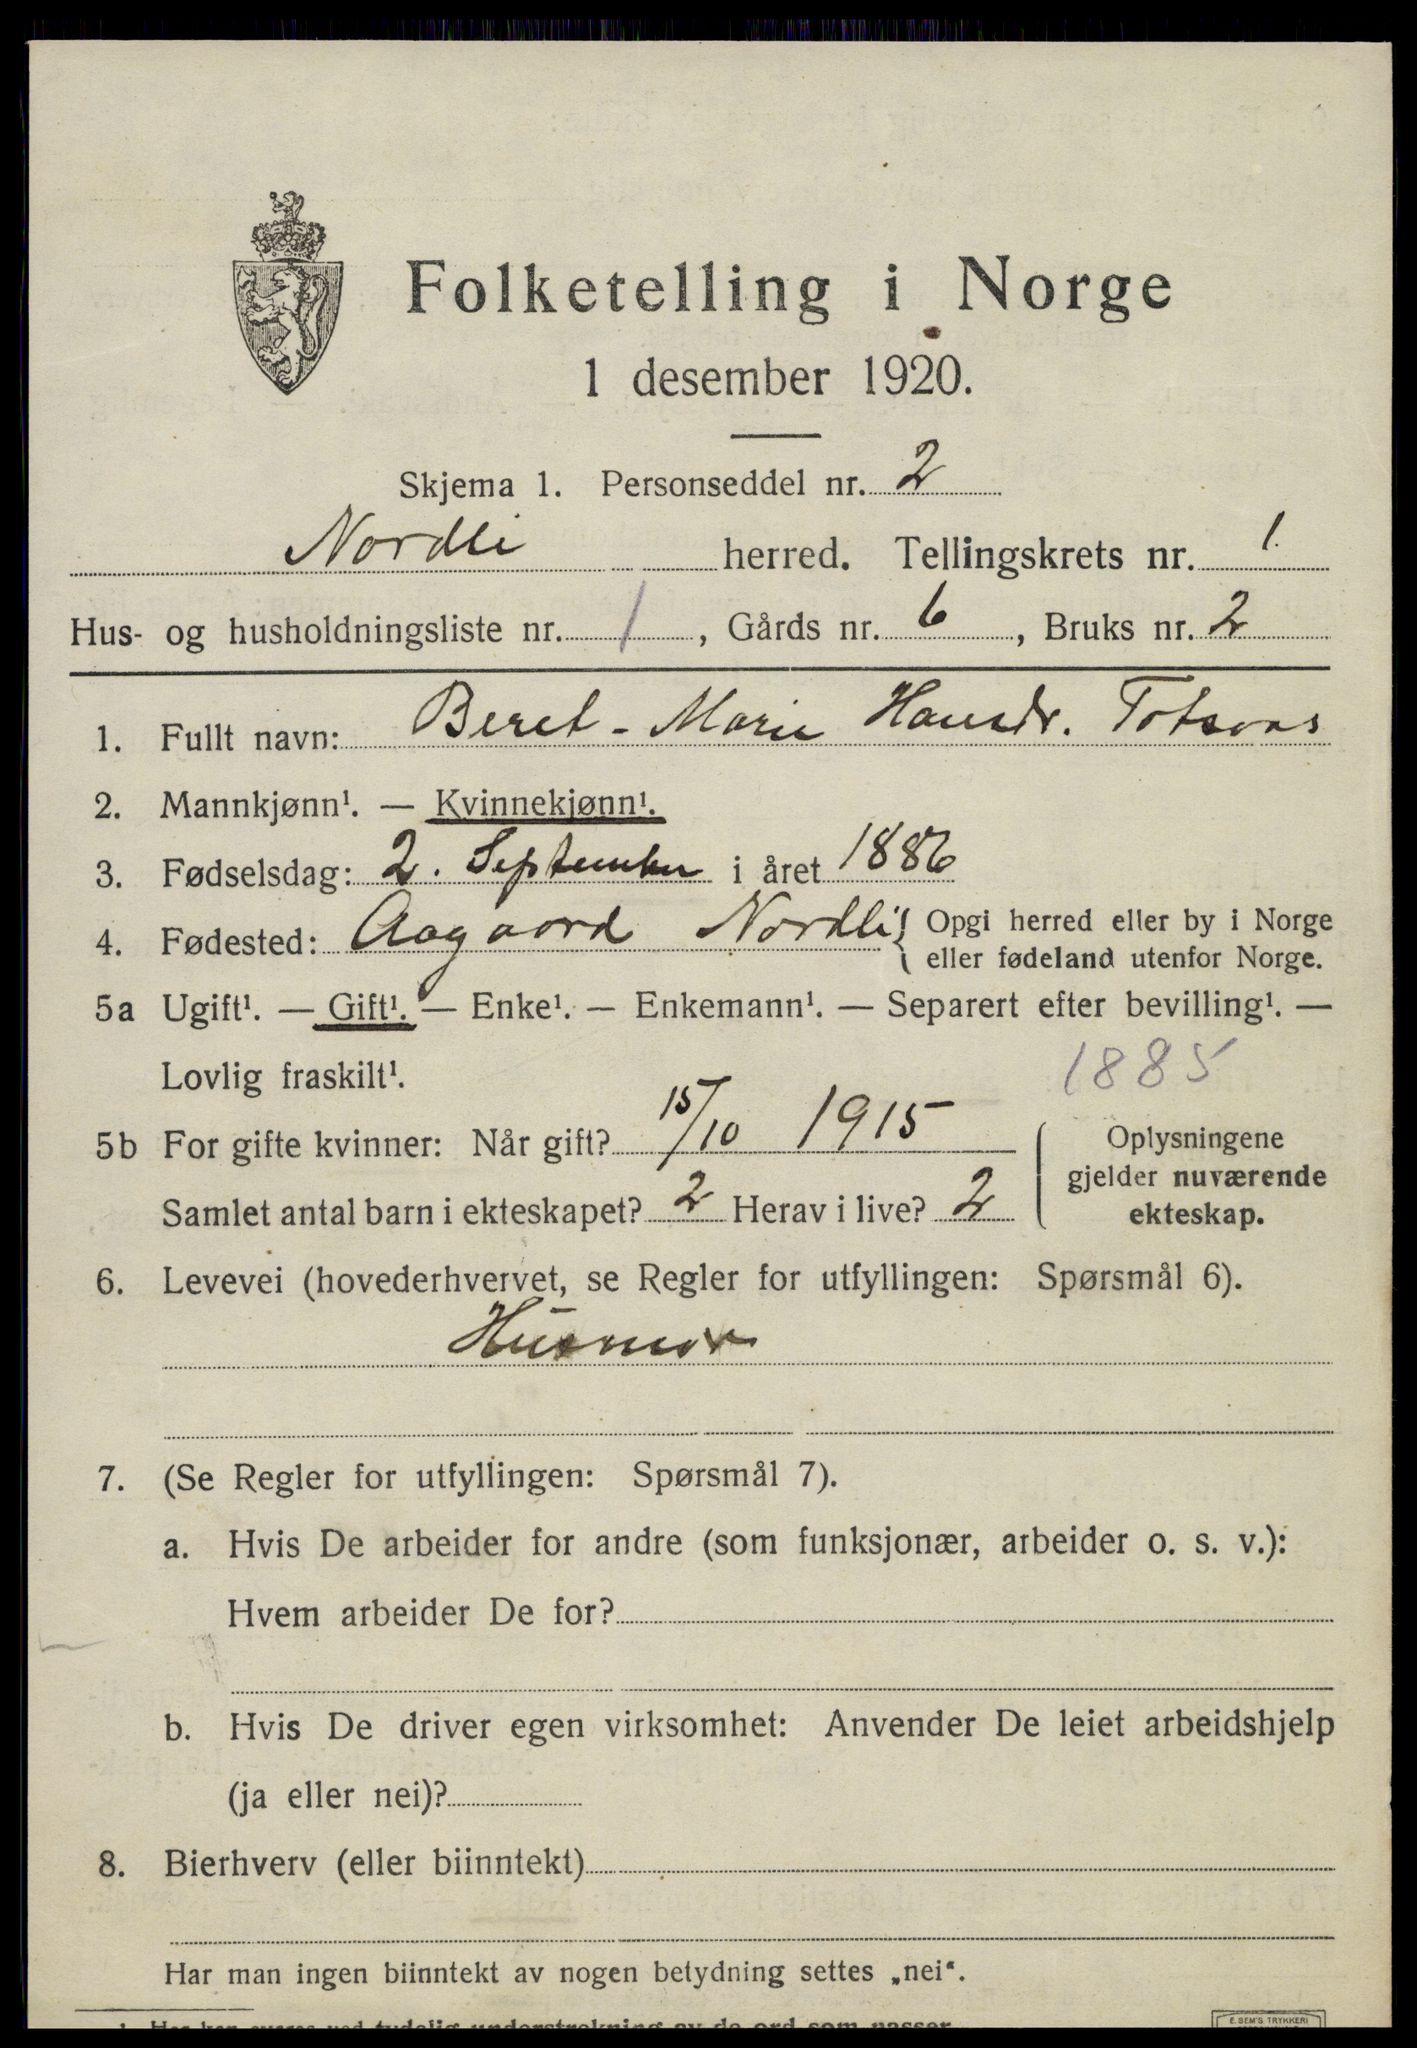 Folketelling i Norge
1 desember 1920.
Skjema 1. Personseddel nr. 2
Nordli herred. Tellingskrets nr. 1.
Hus- og husholdningsliste nr. 1, Gårds nr. 6, Bruks nr. 2
1. Fullt navn: Beret-Marie Hansdr. Totsaas
2. Mannkjønn¹. — Kvinnekjønn¹.
3. Fødselsdag: 2. September i året 1886
4. Fødested: Aagaard Nordli { Opgi herred eller by i Norge
eller fødeland utenfor Norge.
5a Ugift¹. — Gift¹. — Enke¹. — Enkemann¹. — Separert efter bevilling¹. —
Lovlig fraskilt¹.
1885
5b For gifte kvinner: Når gift? 15/10 1915
Samlet antal barn i ekteskapet? 2 Herav i live? 2
Oplysningene
gjelder nuværende
ekteskap.
6. Levevei (hovederhvervet, se Regler for utfyllingen: Spørsmål 6).
Husmor
7. (Se Regler for utfyllingen: Spørsmål 7).
a. Hvis De arbeider for andre (som funksjonær, arbeider o. s. v.):
Hvem arbeider De for?
b. Hvis De driver egen virksomhet: Anvender De leiet arbeidshjelp
(ja eller nei)?
8. Bierhverv (eller biinntekt)
Har man ingen biinntekt av nogen betydning settes „nei“.
E. SEM'S TRYKKERI